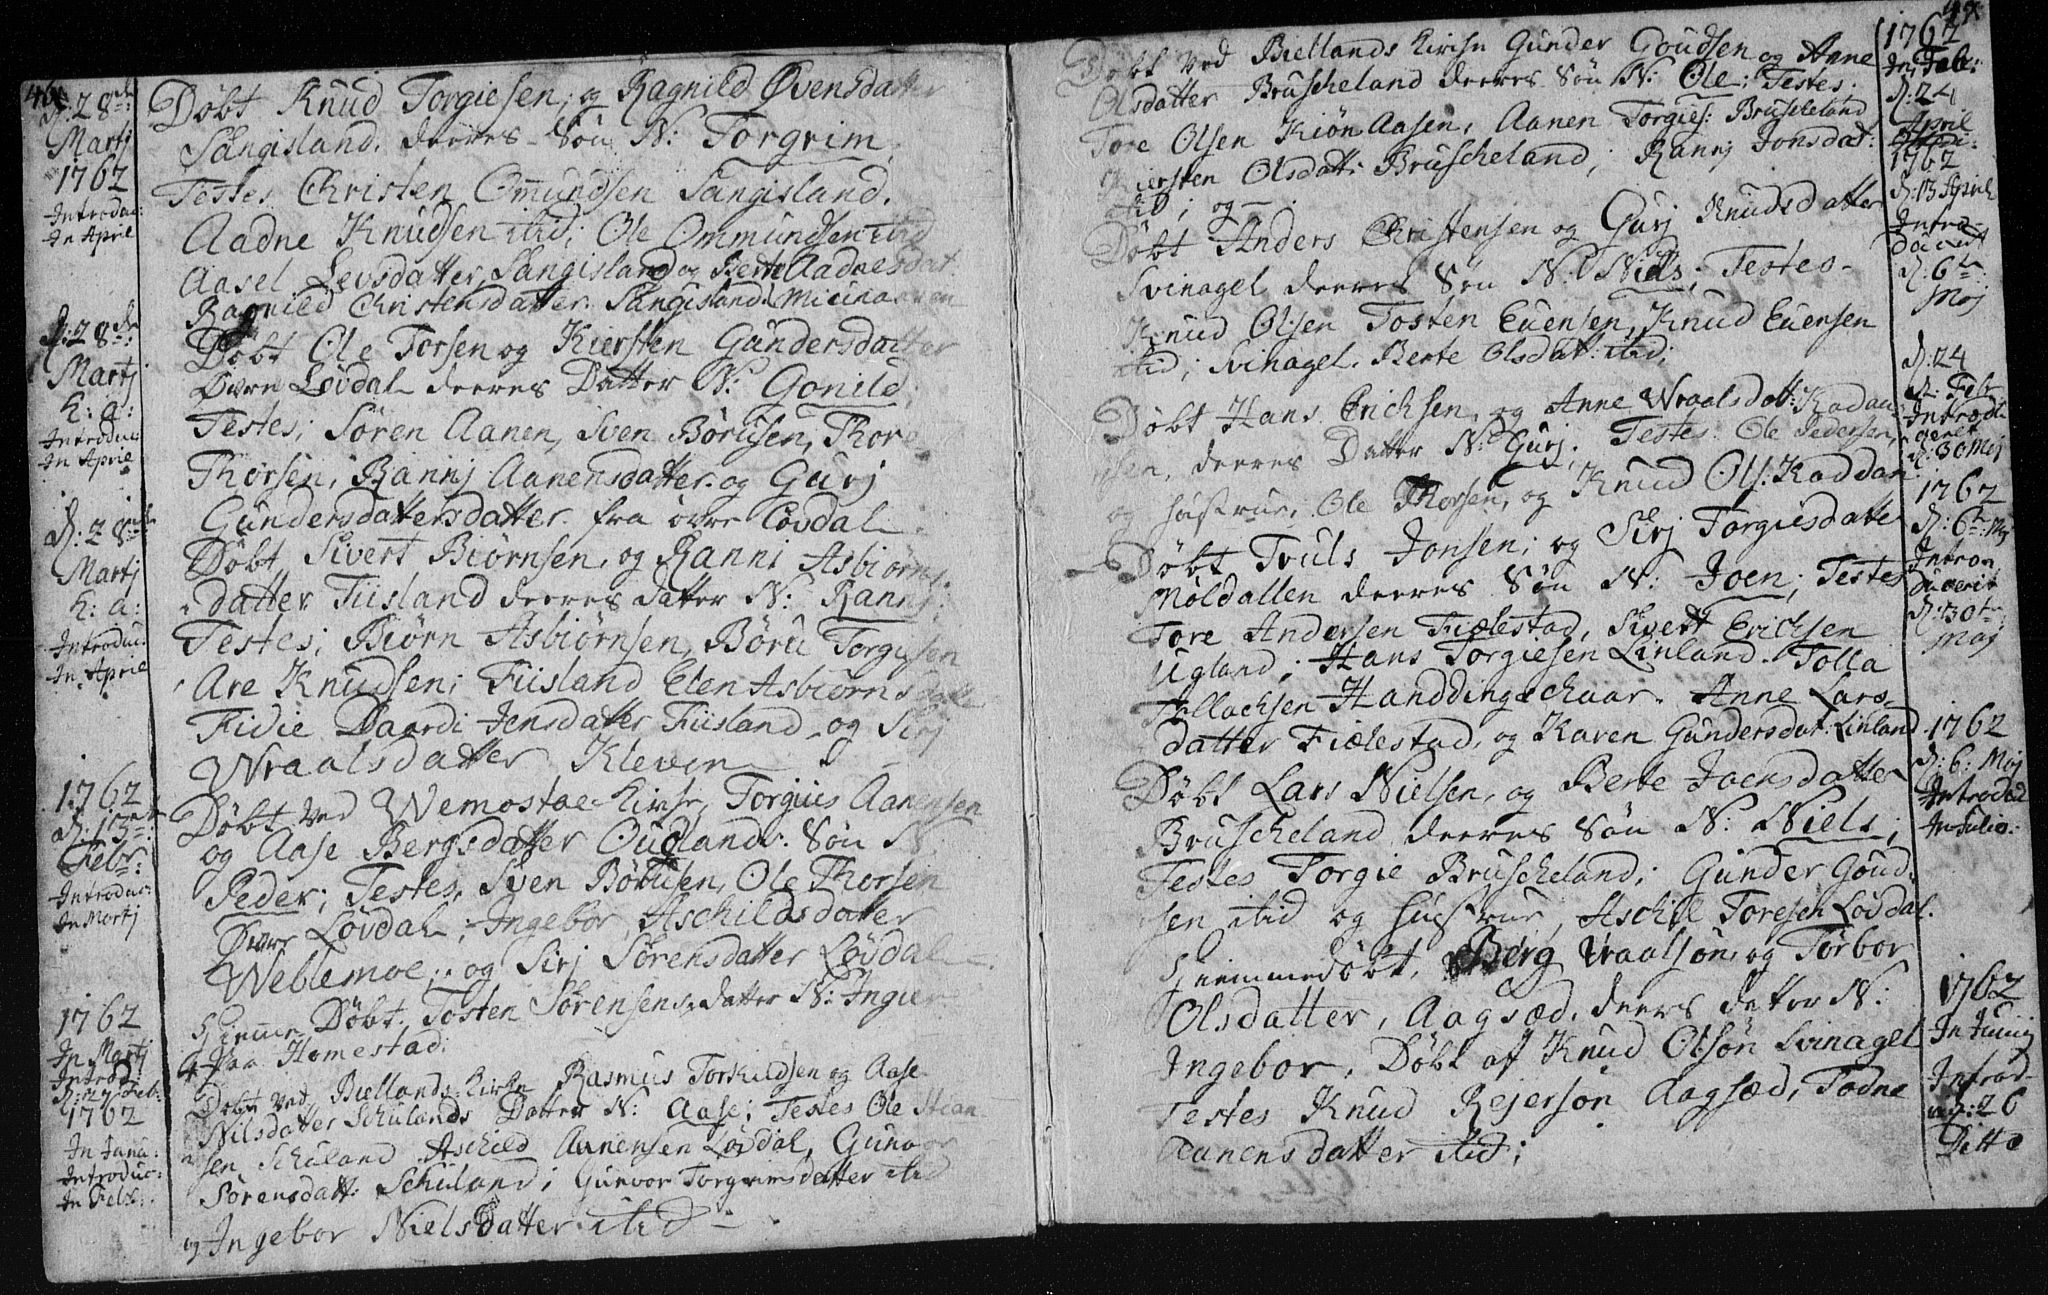 46
d: 28de
Martj
1762
Introduc:
In April
Døbt Knud Torgiesen, og Ragnild Øvensdatter
Sangisland, deeres Søn N: Torgrim,
Testes Christen Ommundsen Sangisland.
Aadne Knudsen itid; Ole Ommundsen itid
Aasel Levsdatter, Sangisland og Berte Aadnesdat
Ragnild Christensdatter Sangisland
d: 28de
Martj
h: a:
Introduc:
In April
Døbt Ole Torsen og Kiersten Gundersdatter
Øvre Løvdal deeres Datter N: Gonild;
Testes; Søren Aanen, Sven Børusen, Thor
Thorsen, Rannj Aanensdatter og Gurj
Gundersdattersdatter fra øvre Løvdal
d: 28de
Martj
h: a:
Introduc:
In April
Døbt Sivert Biørnsen, og Ranni Asbiørns
datter Fiisland deeres datter N: Rannj:
Testes; Biørn Asbiørnsen, Børu Torgusen
Are Knudsen; Fiisland Elen Asbiørnsdatt
Fidie Daardi Jensdatter Fiisland og Sirj
Wraalsdatter Kleven
1762
d: 13de
Febr:
Introduc:
In Martj
Døbt ved Wemostae Kirke, Torgius Aanensen
og Aase Bergsdatter Oudlands Søn N
Peder; Testes, Sven Børusen, Ole Thorsen
Øvre Løvdal; Ingebor Aschildsdatter
Weblemoe; og Sirj Sørensdatter Løvdal
1762
In Martj
Introd:
d: 27 Feb:
Hiemme Døbt Tosten Sørensens datter N: Ingier
paa Homestad;
1762
In Janu:
Introduc:
In Febr:
Døbt ved Biellands Kirke Rasmus Torkildsen og Aase
Nilsdatter Schulands Datter N: Aase; Testes Ole Stian
sen Schuland Aschild Aanensen Løvdal, Gunvor
Sørensdatt: Schuland; Gunvor Torgrimsdatter itid
og Ingebor Nielsdatter itid
47
1762
In Febr:
d: 24
April
Døbt ved Biellands Kirke Gunder Goudsen og Anne
Olsdatter Bruscheland deeres Søn N: Ole; Testes
Tore Olsen Kiøn Aasen, Aanen Torgies: Bruscheland
Kiersten Olsdatt: Bruscheland; Rannj Jonsdat:
itid; og
1762
d: 13 April
Intro
d: 6te
Maj
Døbt Anders Christensen og Gurj Knudsdatter
Svinagel deeres Søn N: Niels; Testes
Knud Olsen Tosten Evensen, Knud Evensen
itid; Svinagel. Berte Olsdat: itid;
d: 24
d: Febr
Introd
d: 30 Maj
Døbt Hans Erichsen, og Anne Wraalsdatt: Kadan
sen, deeres Datter N: Gurj; Testes Ole Pedersen,
og hustrue; Ole Thorsen, og Knud Ols: Kaddan
1762
d: 6te: Maj
Intro
d: 30te
Maj
Døbt Truls Jonsen; og Sirj Torgiusdatter
Moldallen deeres Søn N: Joen; Testes
Tore Andersen Fiælestad, Sivert Erichsen
Ugland; Hans Torgiesen Linland. Tolla
Tollachsen Handdingschaar. Anne Lars
datter Fiælestad, og Karen Gundersdat: Linland
1762
d: 6: Maj
Introd
In Julio:
Døbt Lars Nielsen, og Berte Joensdatter
Bruscheland deeres Søn N: Niels;
Testes Torgie Bruscheland; Gunder Goud
sen itid og hustrue, Aschil Toresen Løvdal.
1762
In Junij
Introd
d: 26
Ditto
Hiemmedøbt, Berg Vraalsøn, og Torbor
Olsdatter, Aagsæd, deers detter N:
Ingebor, Døbt af Knud Olsøn Svinagel
Testes Knud Rejersøn Aagsæd, Todne
Aanensdatter itid;